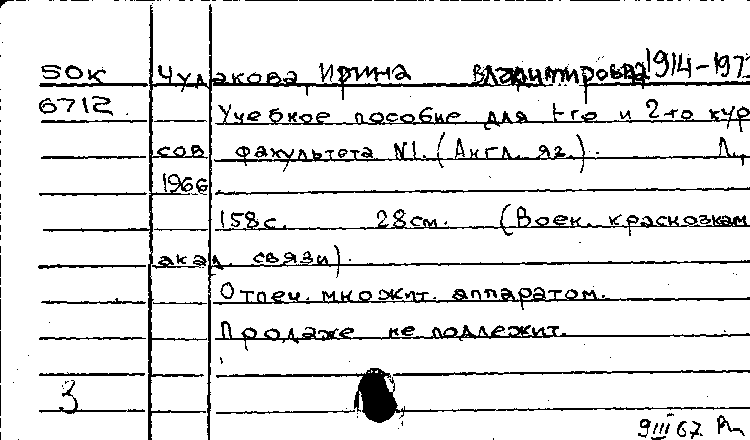 50К Чудакова, Ирина Владимировна 1914-197
6712 Учебное пособие для 1-го и 2-го кур
сов факультета N1. (Англ. яз.). Л.,
1966
158с. 28см. (Воен. краснознам
акад. связи).
Отпеч. множит. аппаратом.
Продаже не подлежит.
3
9 III 67